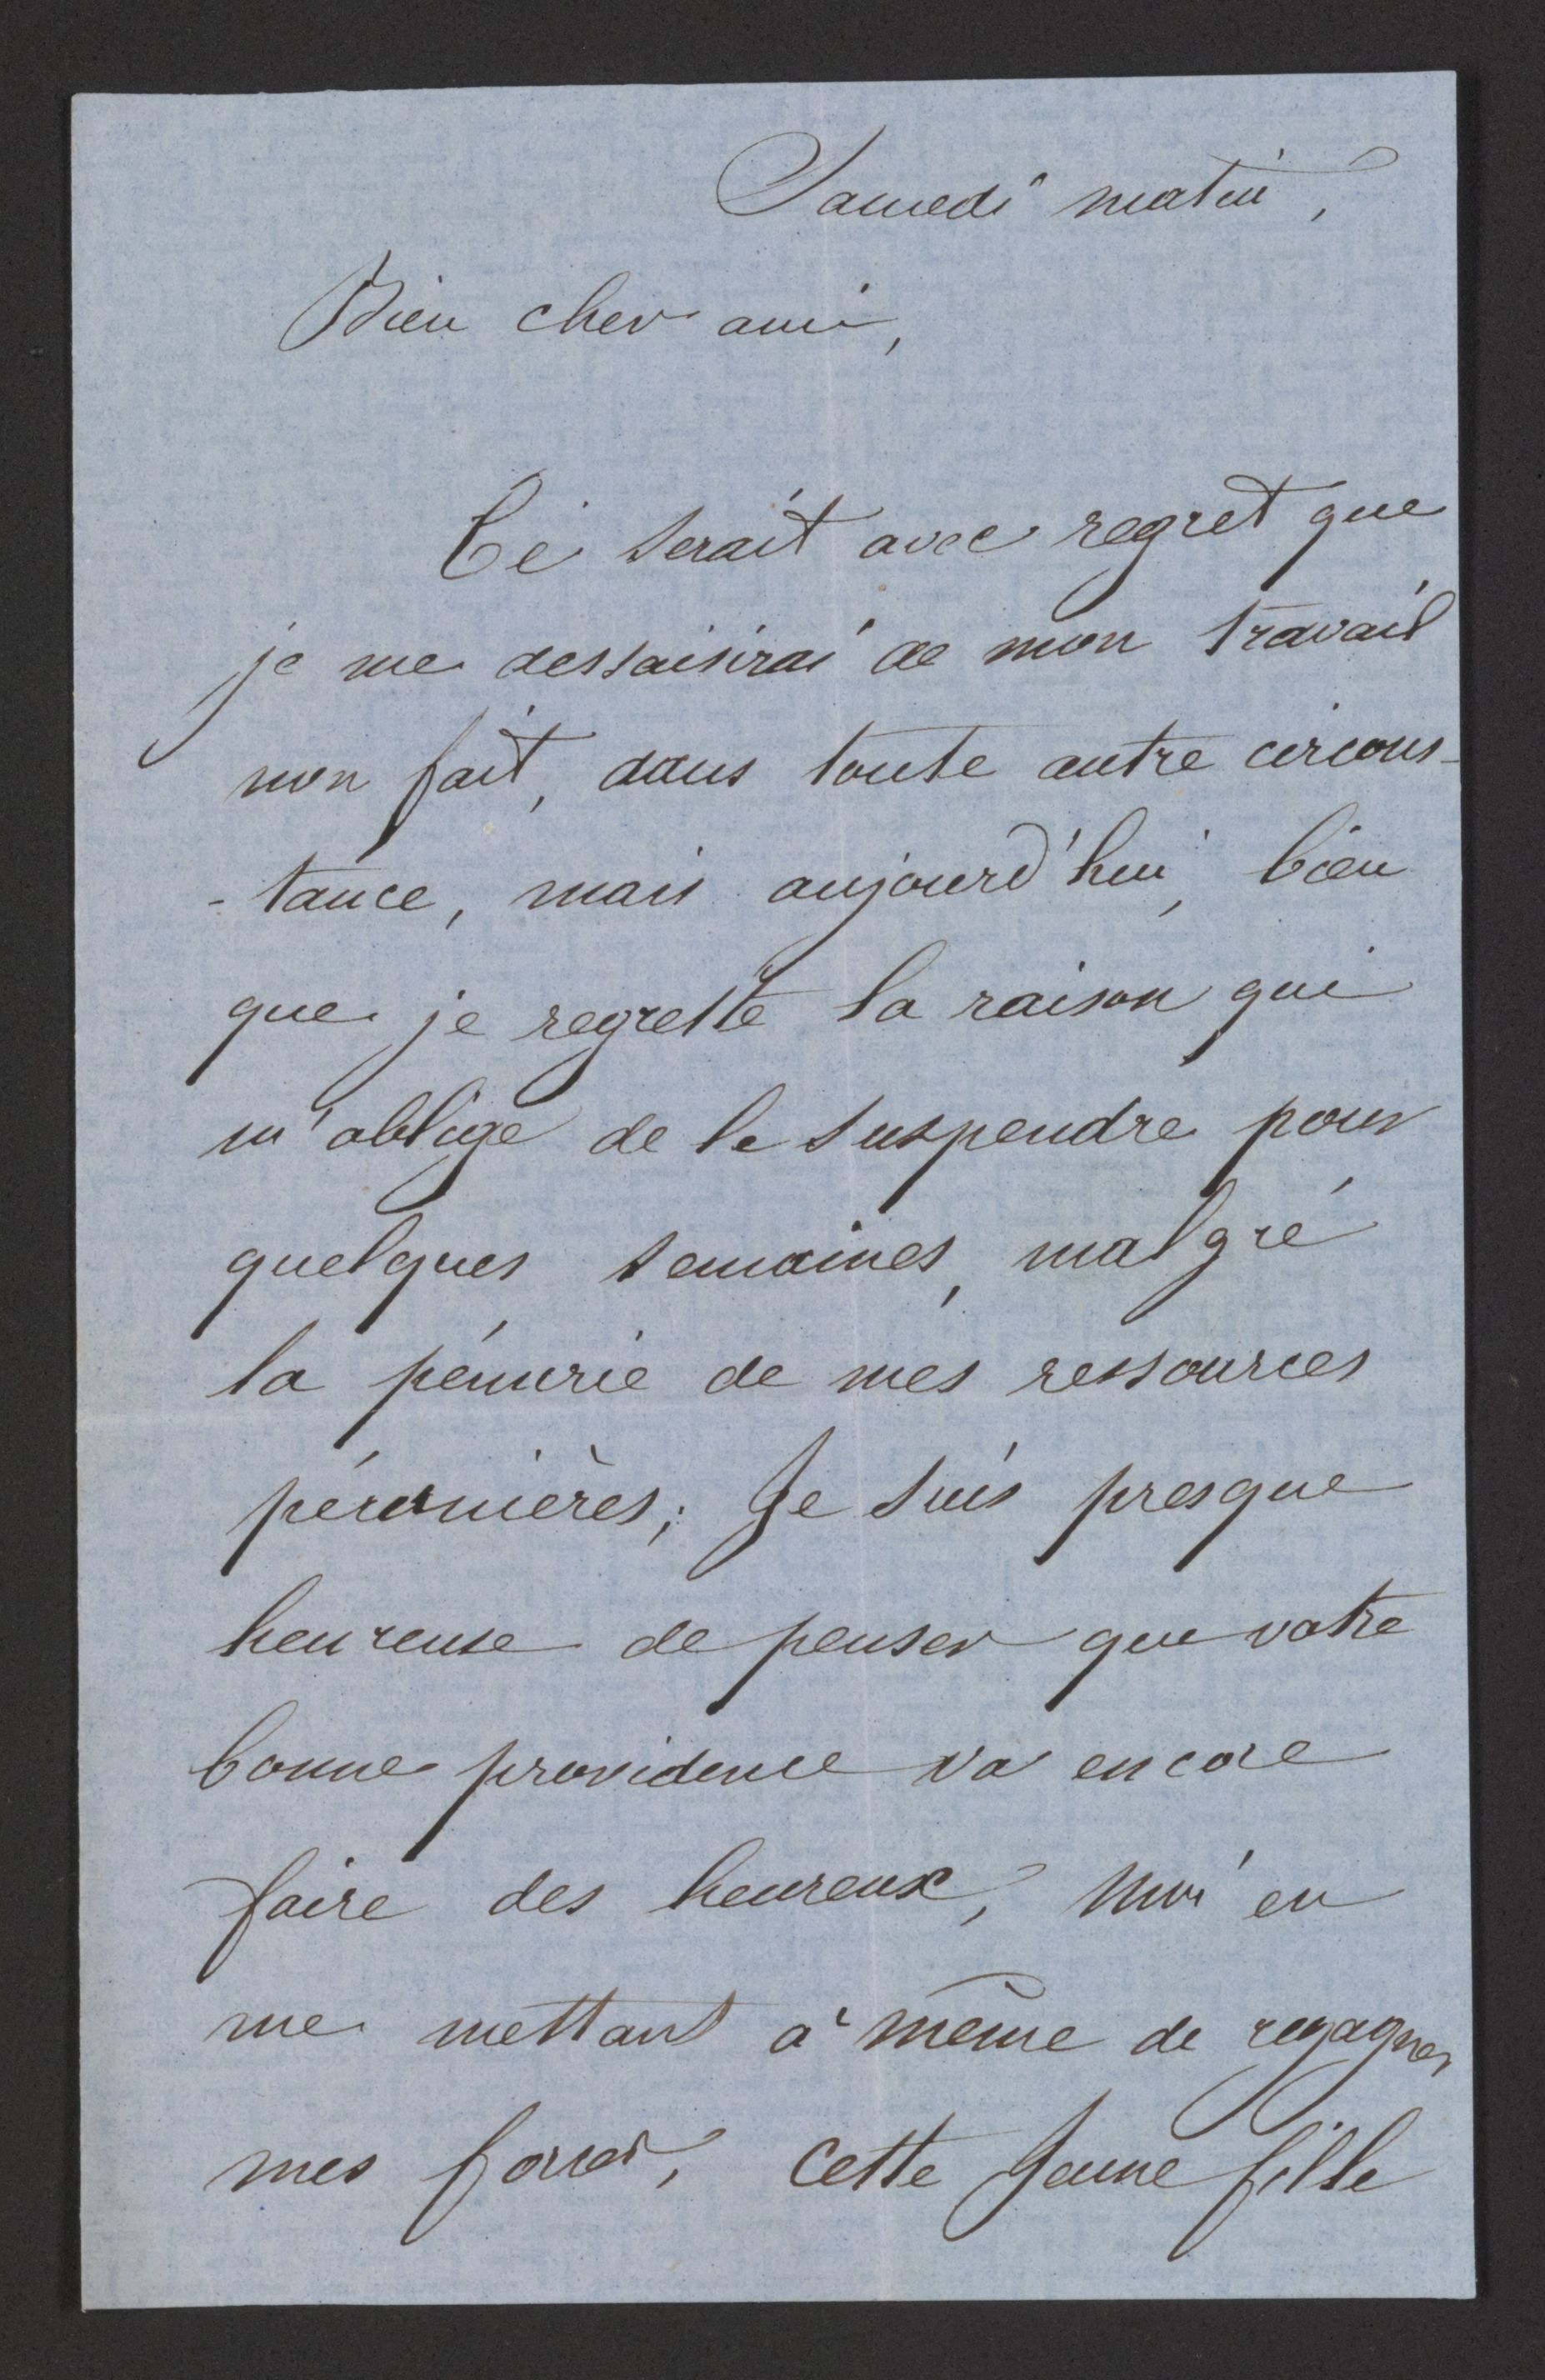 Samedi matin,
Bien cher ami,
Ce serait avec regret que
je me dessaisirai de mon travail
non fait, dans toute autre circons-
-tance, mais aujourd'hui, bien
que je regrette la raison qui
m'oblige de le suspendre pour
quelques semaines, malgré
la pénurie de mes ressources
pécunières; Je suis presque
heureuse de penser que votre
bonne providence va encore
faire des heureux, Moi en
me mettant à même de regagner
mes forces, cette Jeune fille